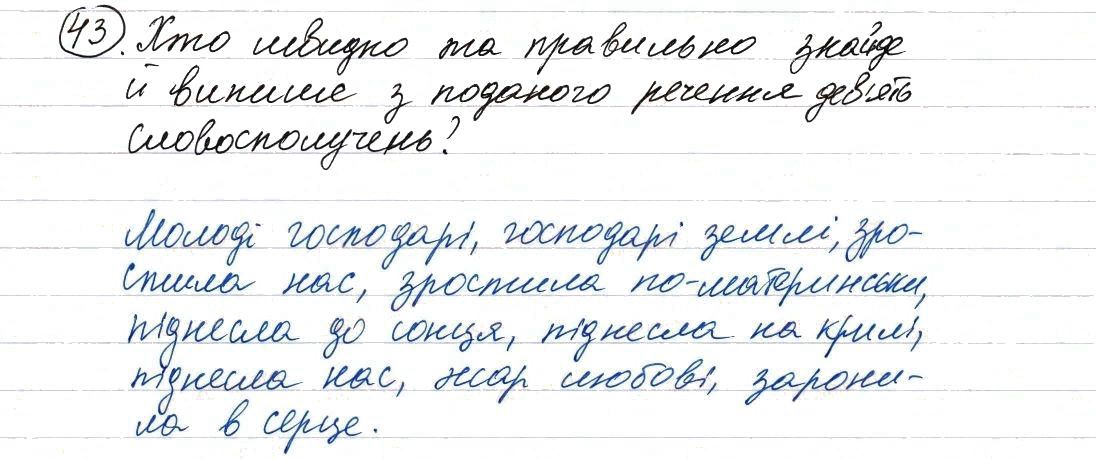 43. Хто швидко та правильно знайде
й випише з поданого речення дев'ять
словосполучень?
Молоді господарі, господарі землі, зро-
стила нас, зростила по-материнськи,
піднесла до сонця, піднесла на крилі,
піднесла нас, жар любові, зарони-
ла в серце.